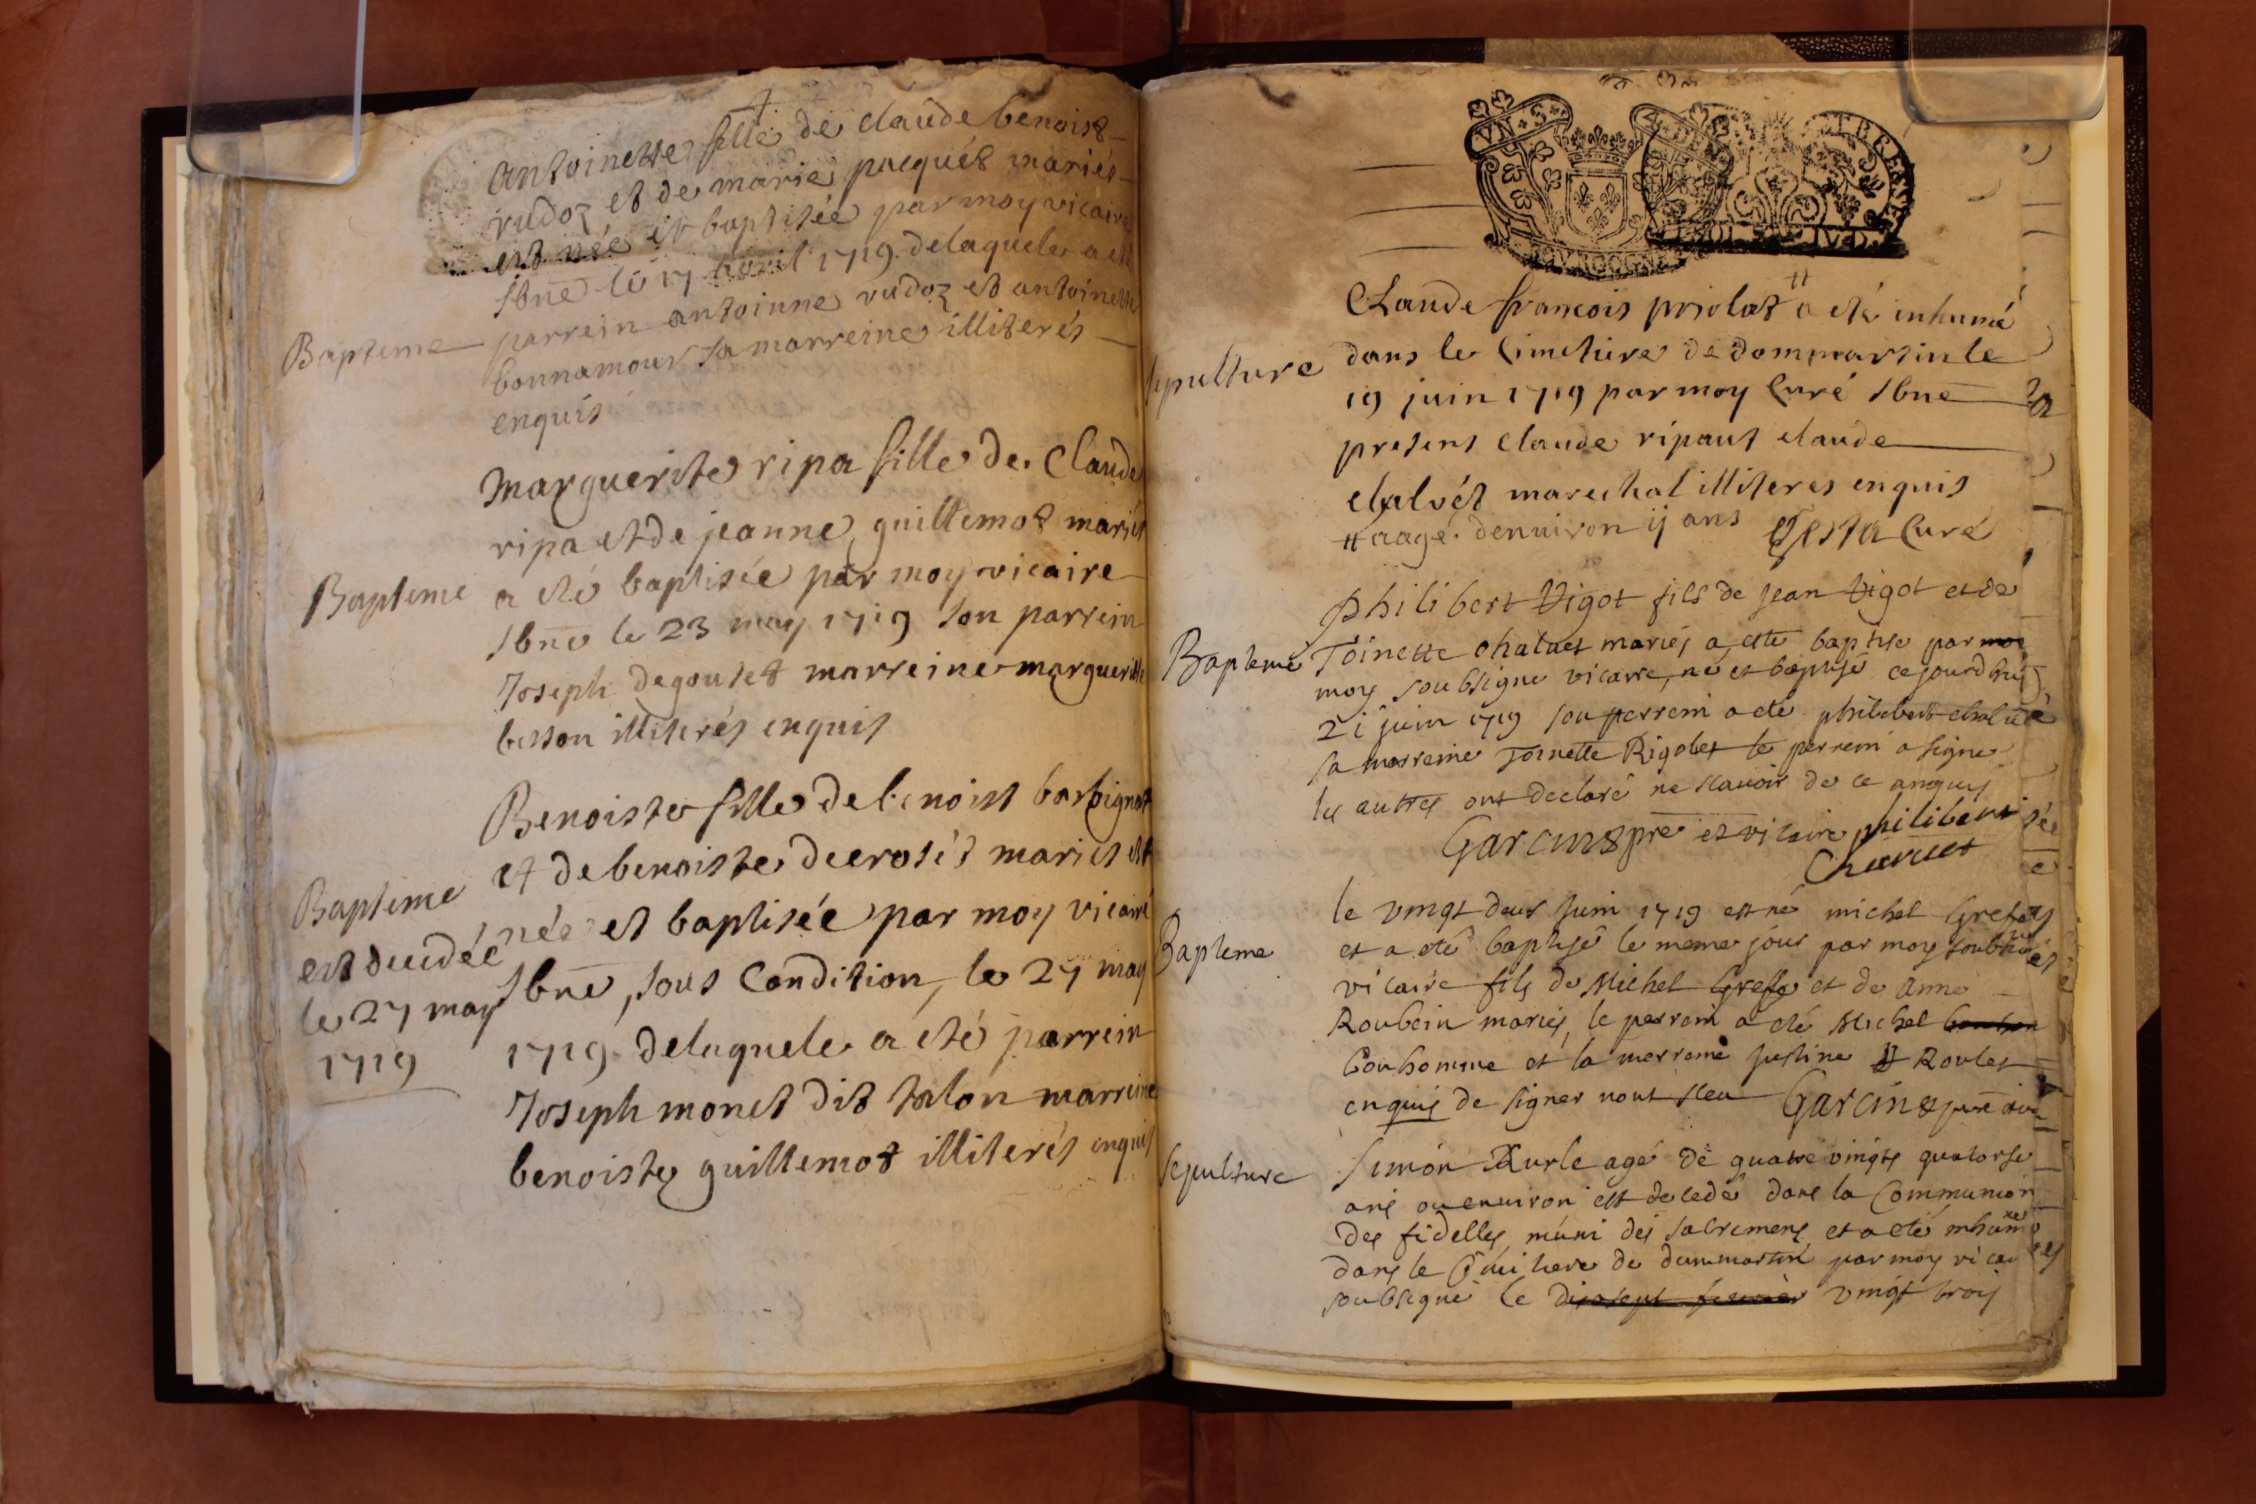 Antoinette fille de claude benoist
rudoz et de marie pacquet mariés
est née et baptisée par moy vicaire
sbne le 17 avril 1719 delaquele a esté
parrein antoinne rudoz et antoinette
Bapteme
bonnamour sa marreine illiterés
enquis
Marguerite ripa fille de Claude
ripa et de jeanne guillemot mariés
Bapteme
a eté baptisée par moy vicaire
sbne le 23 may 1719 son parrein
Joseph degoutet marreine marguerite
besson illiterés enquis
Benoiste fille de benoist barbignot
et de benoiste decrosés mariés est
Bapteme
est decedée
le 27 may
1719
née et baptisée par moy vicaire
sbne, sous Condition, le 27 may
1719 delaquele a eté parrein
Joseph monet dit talon marreine
benoiste guillemot illiterés enquis
Claude francois priolat # a eté inhumé
Sepulture
dans le Cimetiere de dommartin le
19 juin 1719 par moy Curé sbne
presens claude ripaut claude
chalvet marechal illiteres enquis
# aagé denuiron ij ans Testa Curé
Philibert Vigot fils de Jean Vigot et de
Bapteme
Toinette chaluet mariés a esté baptisé par moy
moy soubsigne vicaire, né et baptisé cejourdhuy
21 juin 1719 son perrein a eté philibert chaluet
sa marreine Toinette Rigolet le perrein a signe
les autres ont declaré ne scauoir de ce enquis
Garcin pre et vicaire philibert
Charuet
le vingt deux Juin 1719 est né michel Grefe
Bapteme
et a eté baptisé le meme jour par moy soubsigné
vicaire fils de Michel Grefe et de Anne
Roubein mariés, le perrein a eté Michel
bonhomme et la merreine Justine Roulet
enquis de signer nont sceu Garcin pre vic
Sepulture
Simon Kurle agé de quatre vingts quatorse
ans ou enuiron est decedé dans la Communion
des fidelles muni des sacremens et a eté inhumé
dans le Cimitiere de dommartin par moy vicaire
soubsigné le dixsept feurier vingt trois